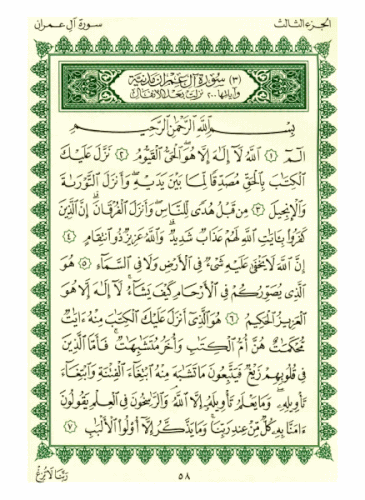 الجزء الثالث
سورة آل عمران
(٣) سورة آل عمران مدنية
وآياتها ٢٠٠ نزلت بعد الأنفال
بسم الله الرحمن الرحيم
الٓمٓ ١ ٱللَّهُ لَآ إِلَٰهَ إِلَّا هُوَ ٱلْحَىُّ ٱلْقَيُّومُ ٢ نَزَّلَ عَلَيْكَ
ٱلْكِتَٰبَ بِٱلْحَقِّ مُصَدِّقًا لِّمَا بَيْنَ يَدَيْهِ وَأَنزَلَ ٱلتَّوْرَىٰةَ
وَٱلْإِنجِيلَ ٣ مِن قَبْلُ هُدًى لِّلنَّاسِ وَأَنزَلَ ٱلْفُرْقَانَ إِنَّ ٱلَّذِينَ
كَفَرُوا۟ بِـَٔايَٰتِ ٱللَّهِ لَهُمْ عَذَابٌ شَدِيدٌ وَٱللَّهُ عَزِيزٌ ذُو ٱنتِقَامٍ ٤
إِنَّ ٱللَّهَ لَا يَخْفَىٰ عَلَيْهِ شَىْءٌ فِى ٱلْأَرْضِ وَلَا فِى ٱلسَّمَآءِ ٥ هُوَ
ٱلَّذِى يُصَوِّرُكُمْ فِى ٱلْأَرْحَامِ كَيْفَ يَشَآءُ لَآ إِلَٰهَ إِلَّا هُوَ
ٱلْعَزِيزُ ٱلْحَكِيمُ ٦ هُوَ ٱلَّذِىٓ أَنزَلَ عَلَيْكَ ٱلْكِتَٰبَ مِنْهُ ءَايَٰتٌ
مُّحْكَمَٰتٌ هُنَّ أُمُّ ٱلْكِتَٰبِ وَأُخَرُ مُتَشَٰبِهَٰتٌ فَأَمَّا ٱلَّذِينَ
فِى قُلُوبِهِمْ زَيْغٌ فَيَتَّبِعُونَ مَا تَشَٰبَهَ مِنْهُ ٱبْتِغَآءَ ٱلْفِتْنَةِ وَٱبْتِغَآءَ
تَأْوِيلِهِۦ وَمَا يَعْلَمُ تَأْوِيلَهُۥٓ إِلَّا ٱللَّهُ وَٱلرَّٰسِخُونَ فِى ٱلْعِلْمِ يَقُولُونَ
ءَامَنَّا بِهِۦ كُلٌّ مِّنْ عِندِ رَبِّنَا وَمَا يَذَّكَّرُ إِلَّآ أُو۟لُوا۟ ٱلْأَلْبَٰبِ ٧
ربنا لا تزغ
٥٨